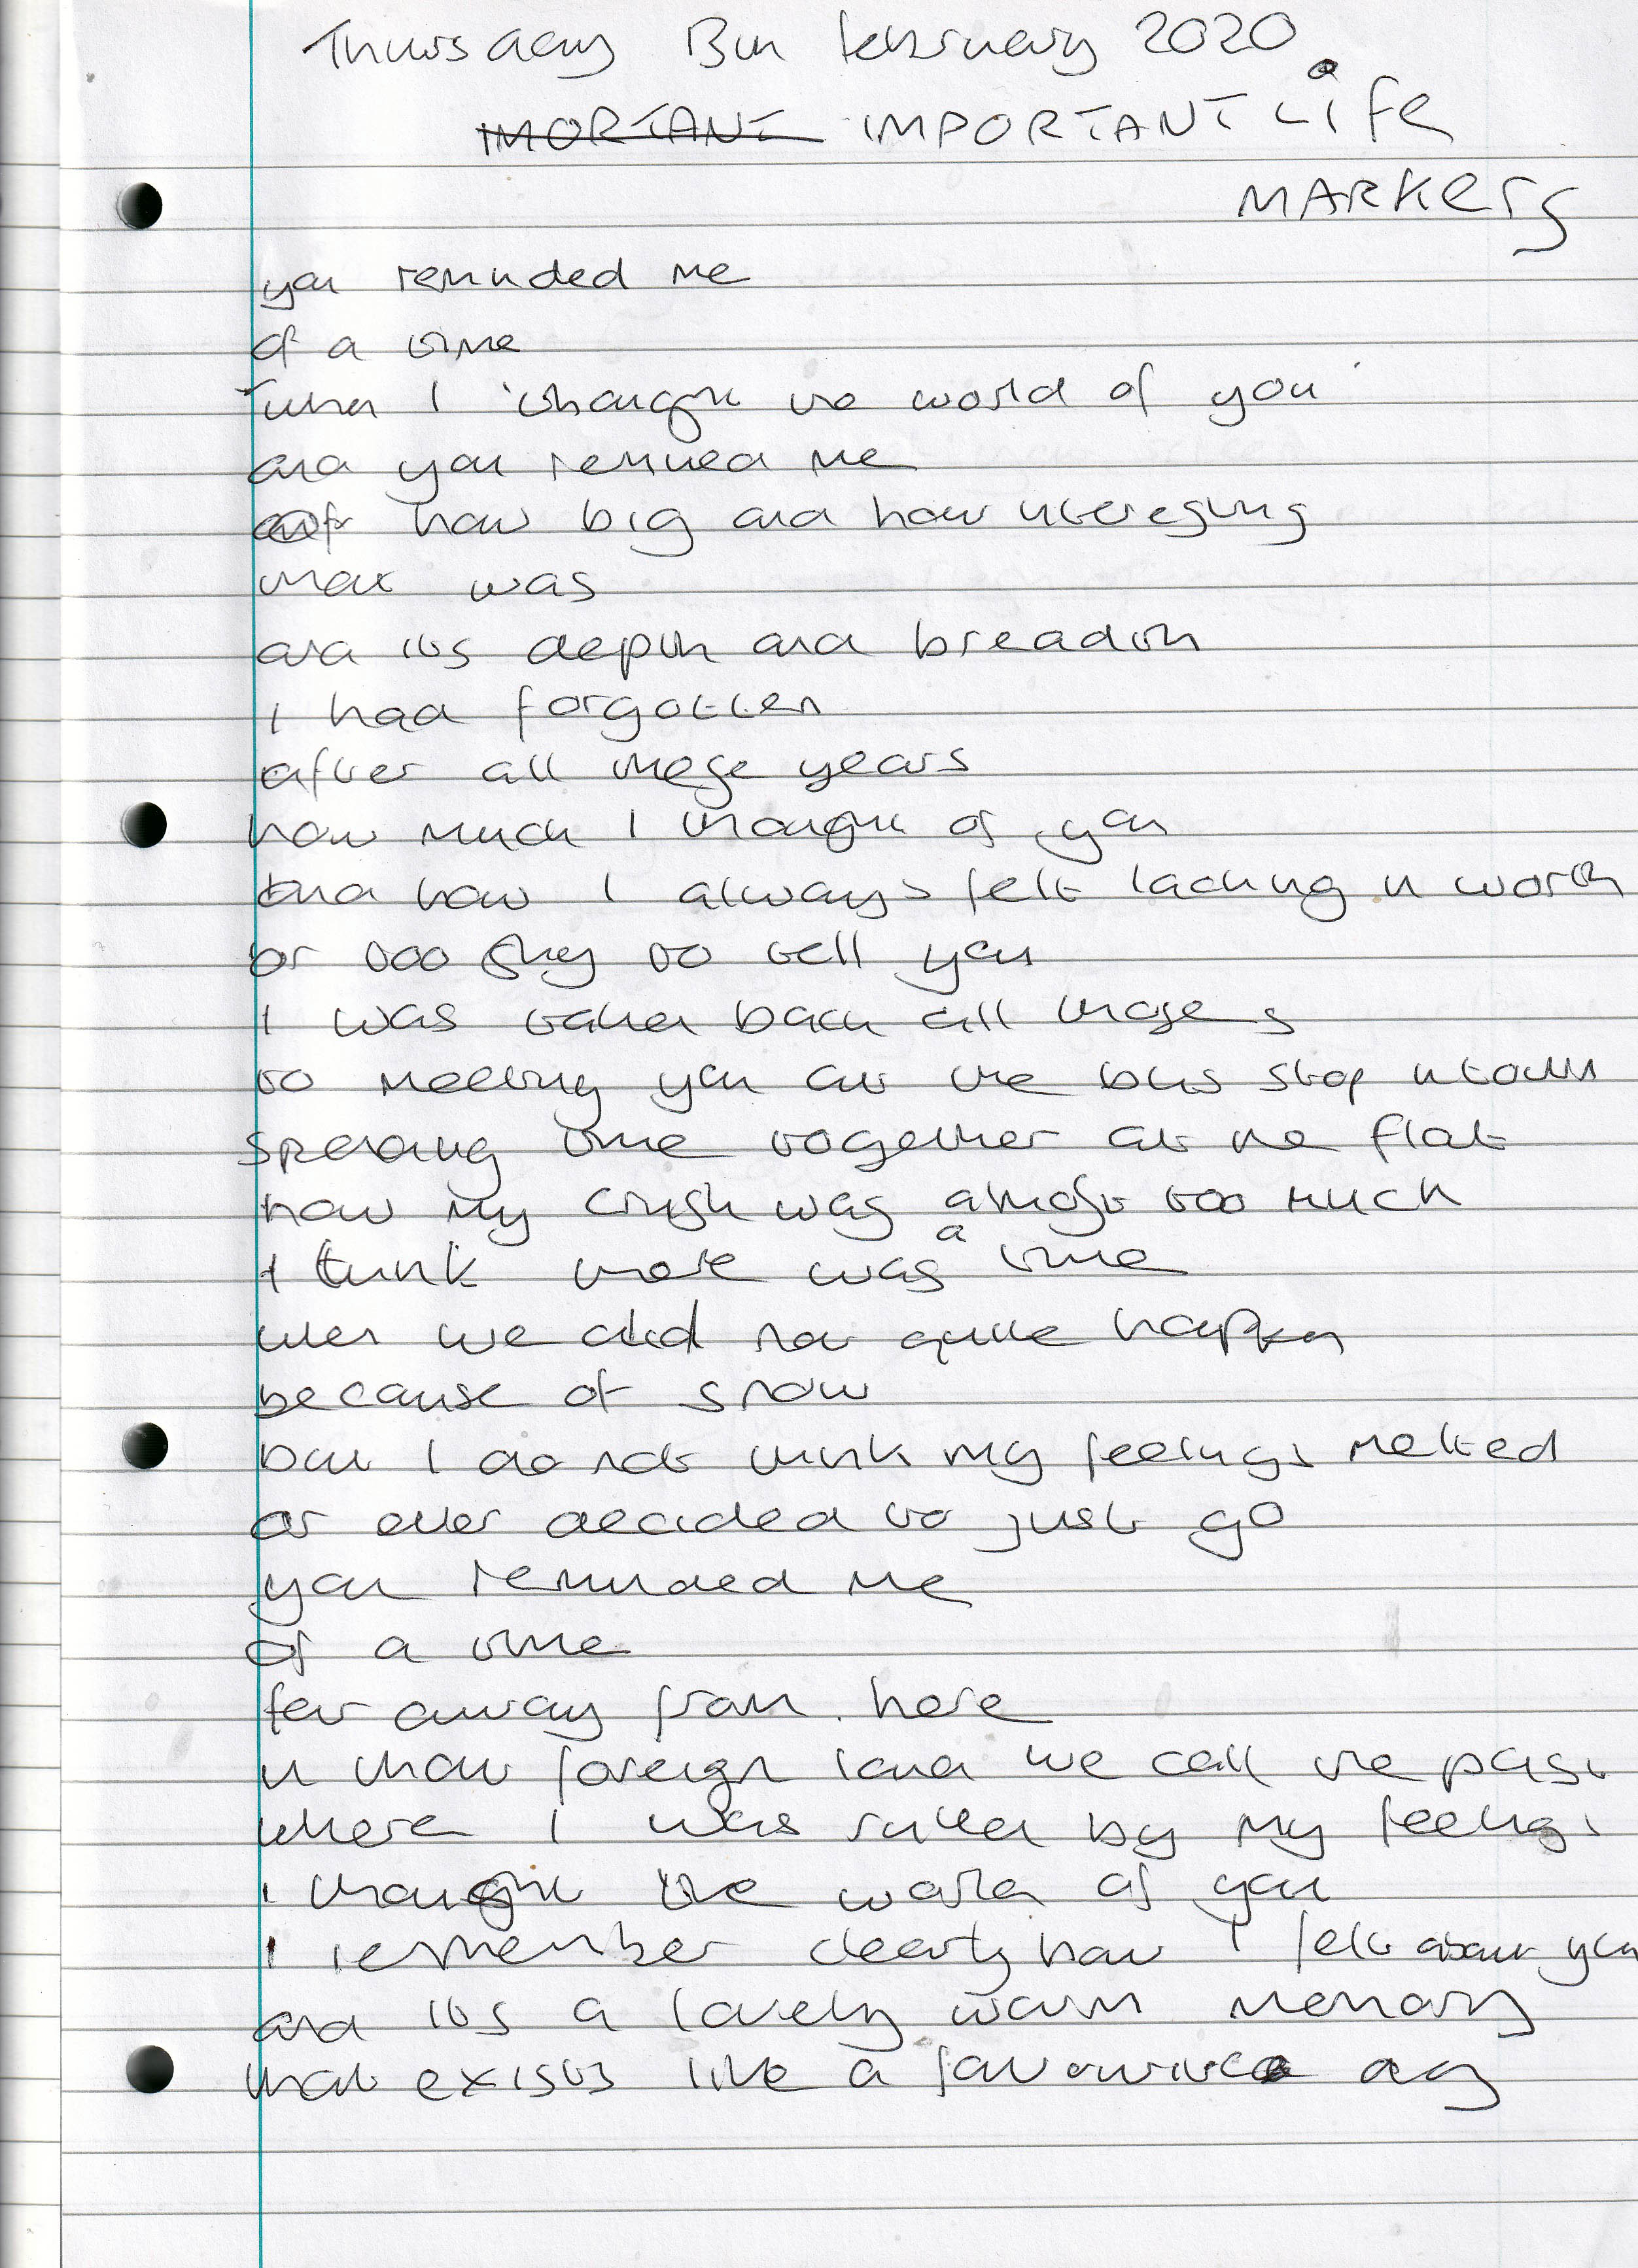 Thursday 13th february 2020
IMORTANT IMPORTANT LIFE
MARKERS
you reminded me
of a time
when I thought the world of you
and you remined me
of how big and how interesting
that was
and its depth and breadth
I had forgotten
after all these years
how much I thought of you
and how I always felt lacking in worth
or too shy to tell you
I was taken back all those
to meeting you at the bus stop in town
spending time together at the flat
how my crush was almost too much
I think there was a time
when we did not quite happen
because of snow
but I do not think my feelings melted
or ever decided to just go
you reminded me
of a time
far away from here
in that foreign land we call the past
where I was ruled by my feelings
I thought the world of you
I remember clearly how I felt about you
and its a lovely warm memory
that exists like a favourite day